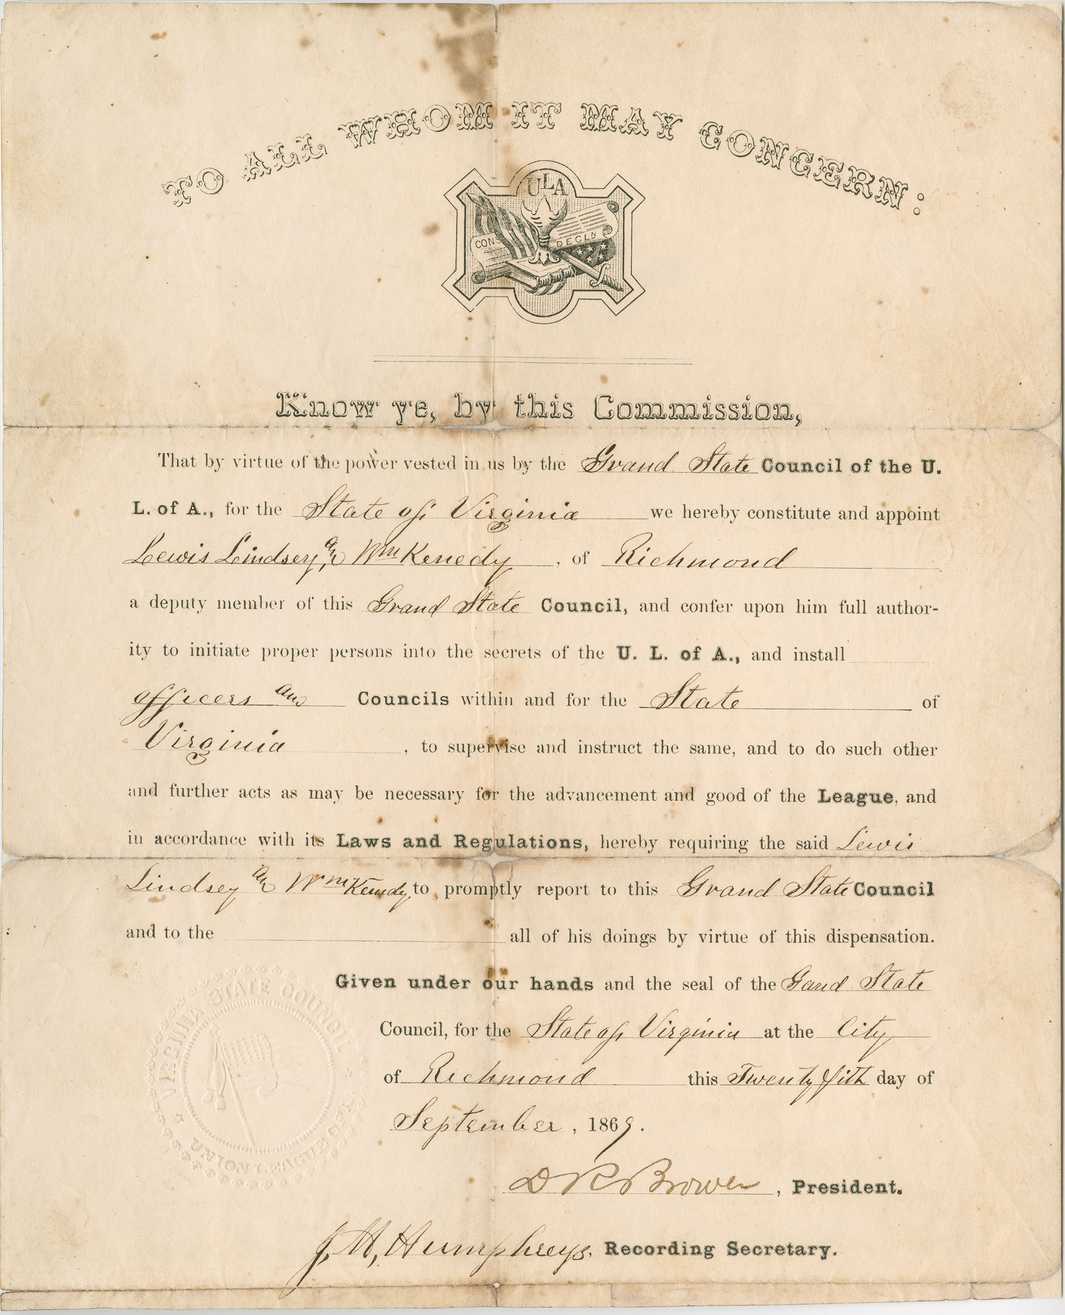 TO ALL WHOM IT MAY CONCERN:
ULA
CON
DECLN
Know ye, by this Commission,
That by virtue of the power vested in us by the Grand State Council of the U.
L. of A., for the State of Virginia we hereby constitute and appoint
Lewis Lindsey & Wm Kenedy, of Richmond
a deputy member of this Grand State Council, and confer upon him full author-
ity to initiate proper persons into the secrets of the U. L. of A., and install
officers Councils within and for the State of
Virginia, to supervise and instruct the same, and to do such other
and further acts as may be necessary for the advancement and good of the League, and
in accordance with its Laws and Regulations, hereby requiring the said Lewis
Lindsey & Wm Kenedy to promptly report to this Grand State Council
and to the all of his doings by virtue of this dispensation.
Given under our hands and the seal of the Gand State
Council, for the State of Virginia at the City
of Richmond this Twenty fith day of
September, 1869.
D R Brower, President.
J. H. Humphreys, Recording Secretary.
VIRGINIA STATE COUNCIL
UNION LEAGUE OF